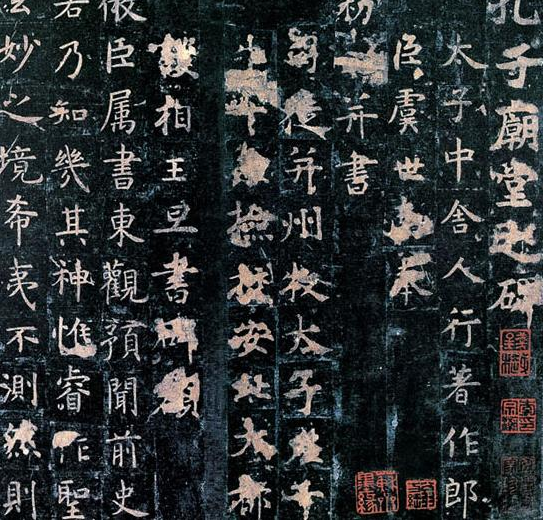 孔子廟堂之碑
太子中舍人行著作郎
臣虞世南奉
勅撰并書
司徒并州牧太子左千
牛率兼撿挍安北大都
護相王旦書碑額
臣属書東觀預聞前史
若乃知幾其神惟睿作聖
妙之境希夷不測然則